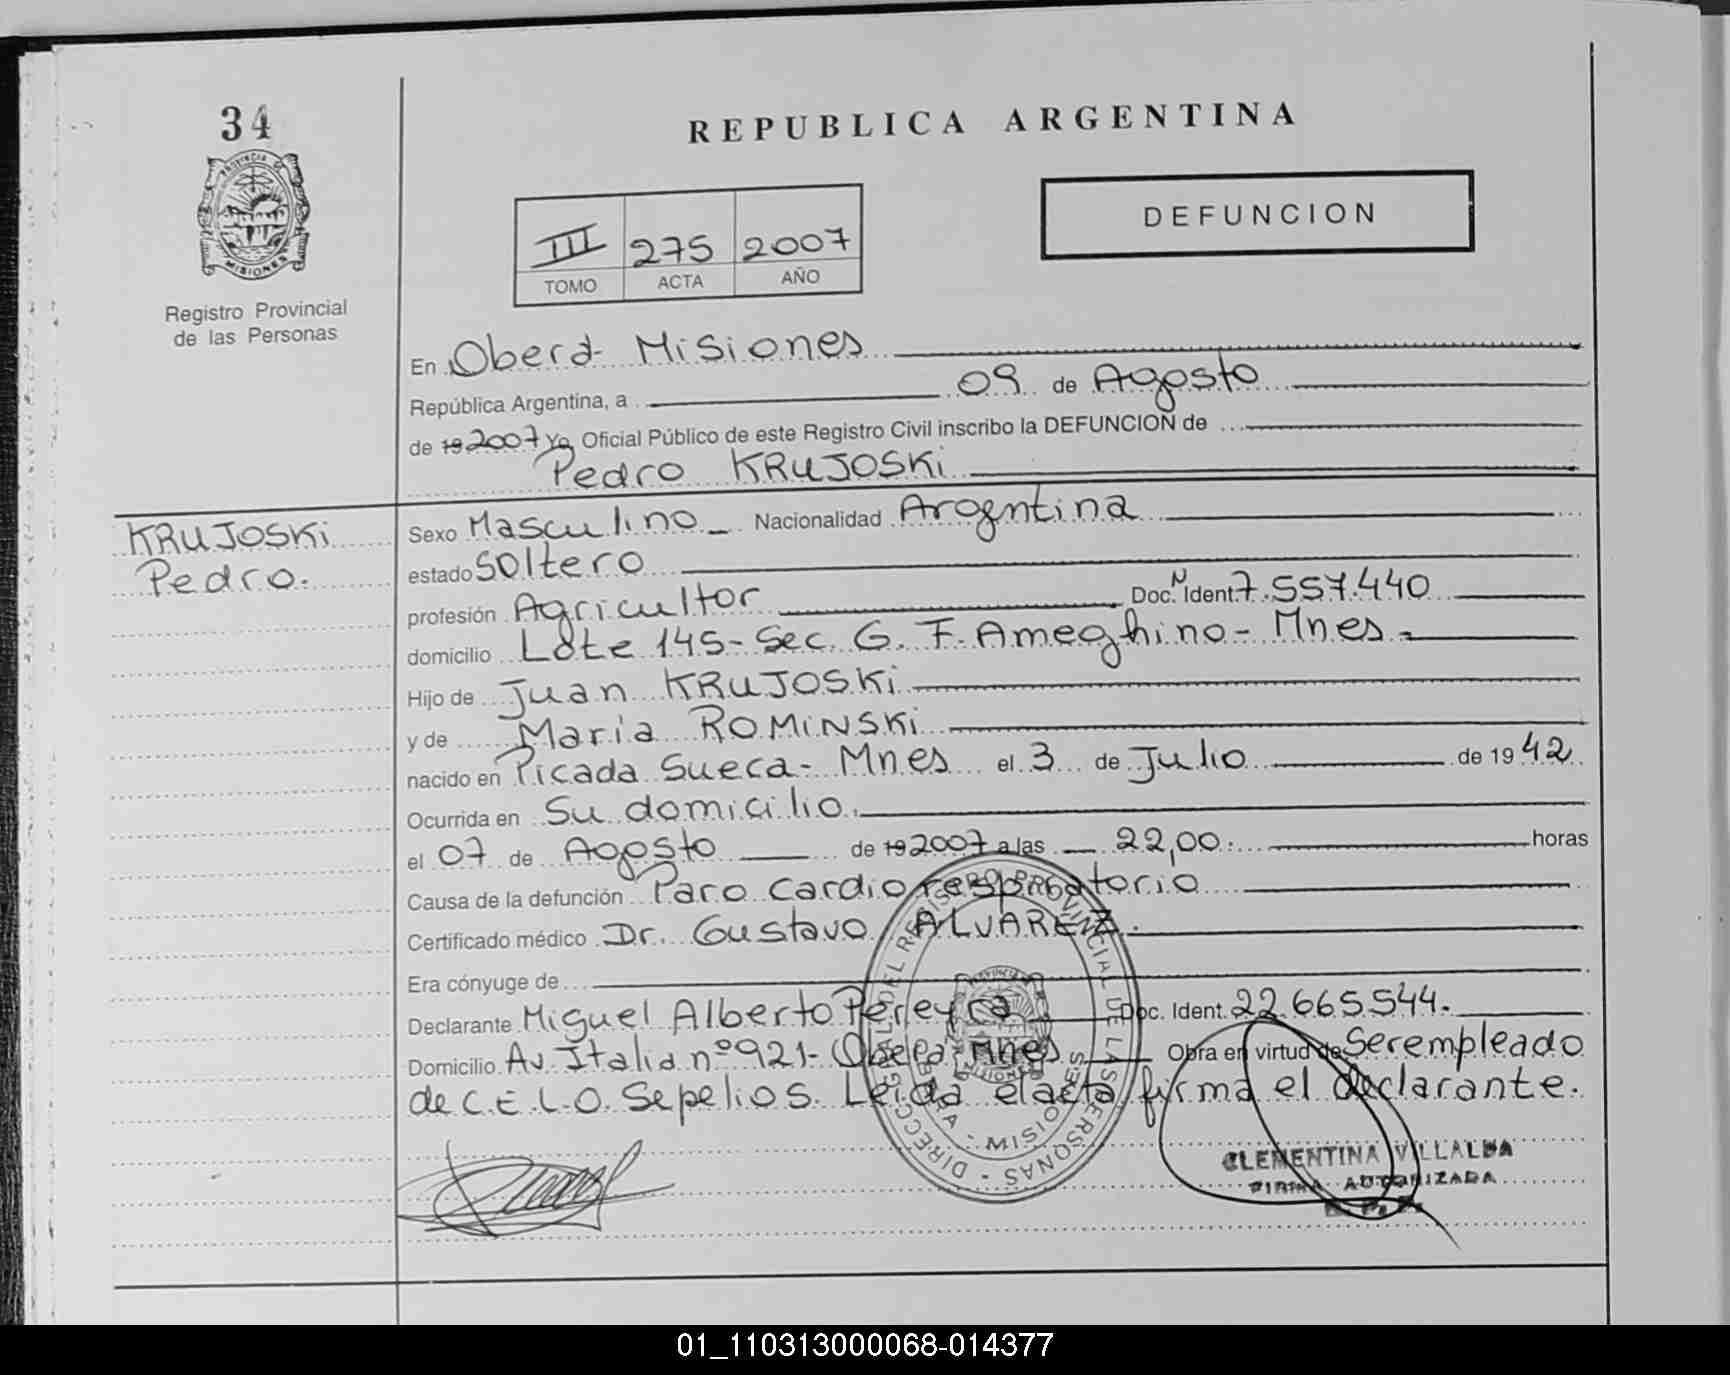 34
PROVINCIA DE
MISIONES
Registro Provincial
de las Personas
REPUBLICA ARGENTINA
DEFUNCION
III 275 2007
TOMO ACTA AÑO
En Oberá- Misiones
República Argentina, a 09 de Agosto
de 19 2007 Yo Oficial Público de este Registro Civil inscribo la DEFUNCION de
Pedro KRUJOSKi
KRUJOSKi
Pedro.
Sexo Masculino Nacionalidad Argentina
estado Soltero
profesión Agricultor Doc. N Ident. 7.557.440
domicilio Lote 145- Sec. G. F. Ameghino- Mnes-
Hijo de Juan KRUJOSKi
y de María ROMiNSKi
nacido en Picada Sueca- Mnes el 3 de Julio de 1942
Ocurrida en Su domicilio.
el 07 de Agosto de 19 2007 a las 22,00. horas
Causa de la defunción Paro cardiorespiratorio
Certificado médico Dr. Gustavo ALVAREZ.
Era cónyuge de
Declarante Miguel Alberto Pereyra Doc. Ident. 22.665.544.
Domicilio Av. Italia nº 921- Oberá Mnes Obra en virtud de Ser empleado
de C.E.L.O. Sepelios. Leida el acta firma el declarante.
DIRECC GRAL DEL REGISTRO PROVINCIAL DE LAS PERSONAS -
MISIONES
CLEMENTINA VILLALBA
FIRMA AUTORIZADA
01_110313000068-014377